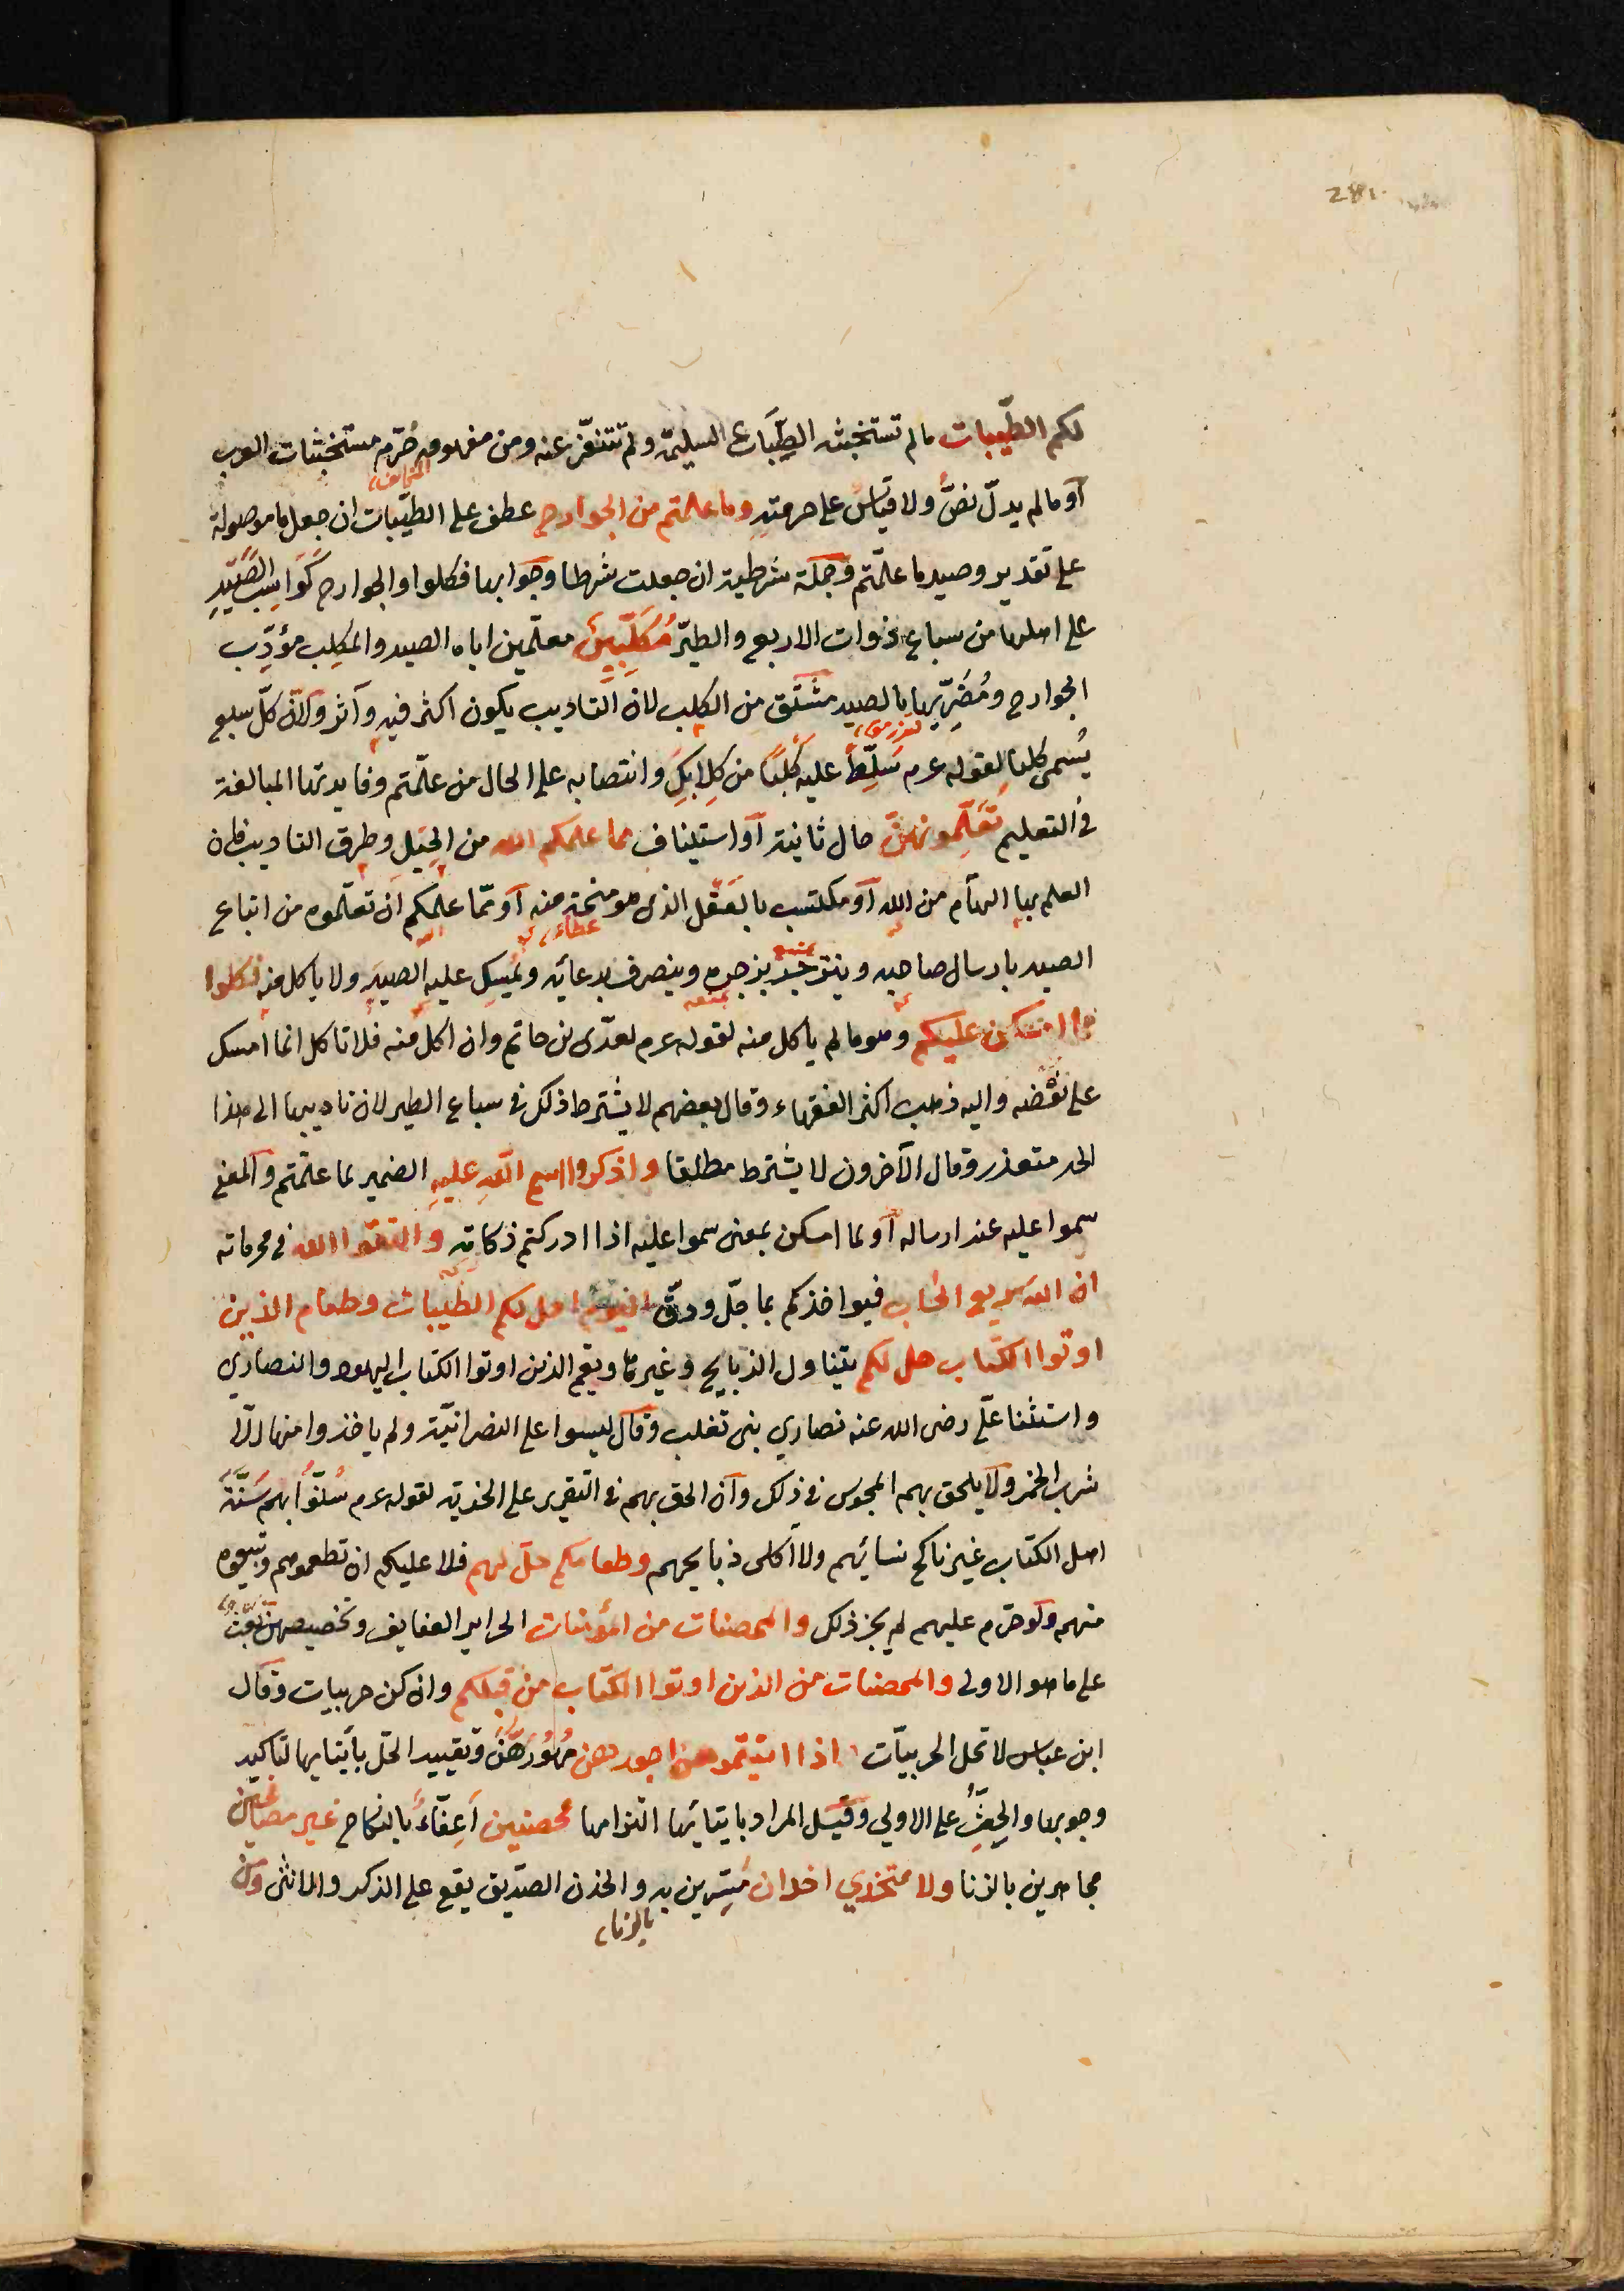 281
لكم الطيّبات ما لم تستخبثه الطِّبَاع السليمة ولم تتنفّر عنه ومن مفهومه حُرّم مستخبثات العرب
المخالف
اَو ما لم يدلّ نصٌّ ولا قياسٌ على حرمته وما علمتم من الجوارح عطف على الطيّبات ان جعل ما موصولة
على تقدير وصيد ما علّمتم وجملة شرطية ان جعلت شرطا وجوابها فكلوا والجوارح كَوَاسِب الصَّيْدِ
على اهلها من سباع ذوات الاربع والطير مُكَلِّبِينَ معلّمين اياه الصيد والمكلِب مؤدِّب
الجوارح ومُضَرِّيها بالصيد مشتق من الكلب لان التاديب يكون اكثر فيه وآثر ولانّ كلّ سبع
يُسمى كلبا لقوله عرم سَلِّطْ عليه كَلْبًا من كِلَابِكَ وانتصابه على الحال من علّمتم وفايدتها المبالغة
في التعليم تُعَلِّمُونهنّ حال ثانية اَو استيناف مما علمكم الله من الحِيَل وطرق التاديب فان
العلم بها الهام من الله اَو مكتسب بالعَقْل الذى هو منحة منه اَو ممّا علمكم ان تعلّموه من اتباع
عطاء
الصيد بارسال صاحبه وينزجر بزجره وينصرف بدعائه ويُمسِك عليه الصيد ولا ياكل منه فكلوا
مما امسكن عليكم وهو ما لم ياكل منه لقوله عرم لعدّى بن حاتم وان اكل منه فلا تاكل انما امسك
على نفسه واليه ذهب اكثر الفقهاء وقال بعضهم لا يشترط ذلك في سباع الطير لان تاديبها الى هذا
الحد متعذر وقال الآخرون لا يشترط مطلقا واذكروا اسم الله عليه الضمير لما علّمتم والمعنى
سموا عليه عند ارساله اَو لما امسكن بمعنى سموا عليه اذا ادركتم ذكاته واتقوا الله في محرماته
ان الله سريع الحساب فيواخذكم بما جلّ ودقّ اليوم احل لكم الطيبات وطعام الذين
اوتوا الكتاب حل لكم يتناول الذبايح وغيرها ويعم الذين اوتوا الكتاب اليهود والنصارى
واستثنا علىّ رضى الله عنه نصارى بنى تغلب وقال ليسوا على النصرانيّة ولم ياخذوا منها الّا
شرب الخمر ولا يلحق بهم المجوس في ذلك وان الحق بهم في التقرير على الجزية لقوله عرم سُنّوا بهم سُنّةَ
اهل الكتاب غير ناكح نسائهم ولا آكلى ذبايحهم وطعامكم حلّ لهم فلا عليكم ان تطعموهم وتبيعوه
منهم ولو حرّم عليهم لم يجز ذلك والمحصنات من المؤمنات الحراير العفايف وتخصيصهن بعث
على ما هو الاولى والمحصنات من الذين اوتوا الكتاب من قبلكم وان كن حربيات وقال
ابن عباس لا تحل الحربيّات اذا اتيتموهن اجورهن مُهُورَهُنَّ وتقييد الحلّ بأيتايها لتاكيد
وجوبها والحثِّ على الاولى وقيل المراد بايتائها التزامها محصنين اَعِفّاءَ بالنكاح غير مصافحين
مجاهرين بالزنا ولا متخذي اخدان مُسِرّين به والخدن الصدّيق يقع على الذكر والانثى ومن
بالزنا